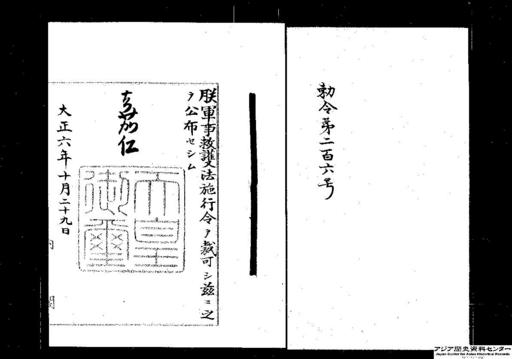 勅令第二百六号
朕軍事救護法施行令ヲ裁可シ茲ニ之
ヲ公布セシム
嘉仁
天皇御璽
大正六年十月二十九日
内閣
アジア歴史資料センター
Japan Center for Asian Historical Records